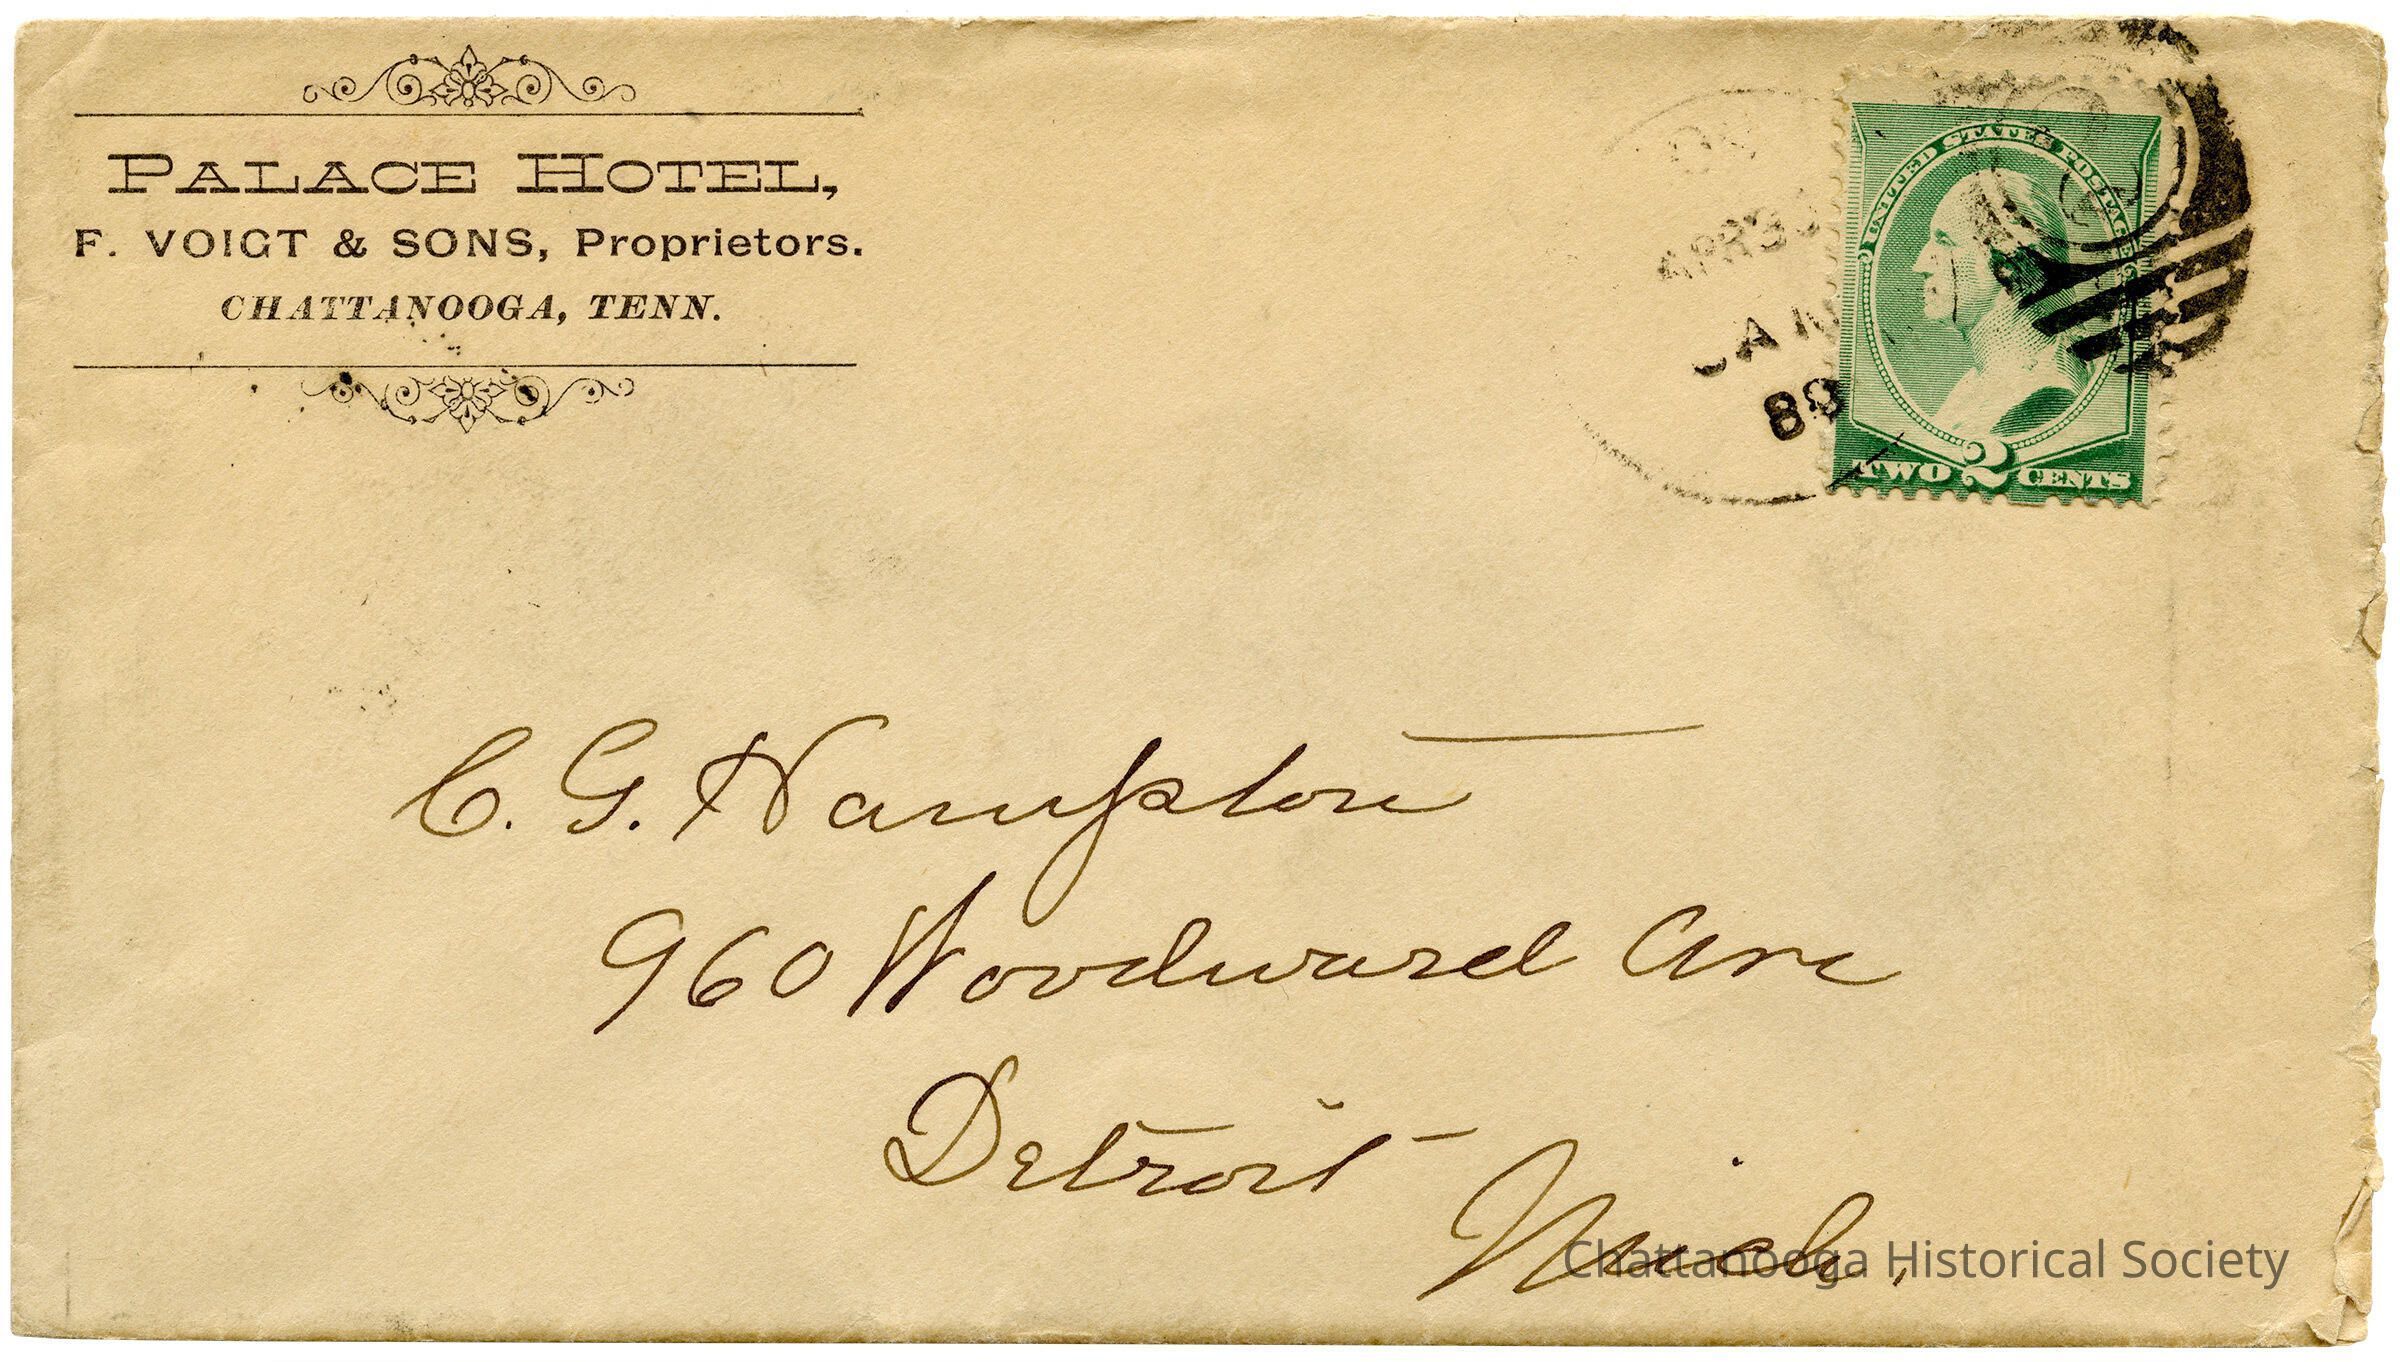 PALACE HOTEL,
F. VOIGT & SONS, Proprietors.
CHATTANOOGA, TENN.
UNITED STATES POSTAGE
JAN
89
TWO 2 CENTS
C. G. Hampton
960 Woodward Ave
Detroit
Mich.
Chattanooga Historical Society